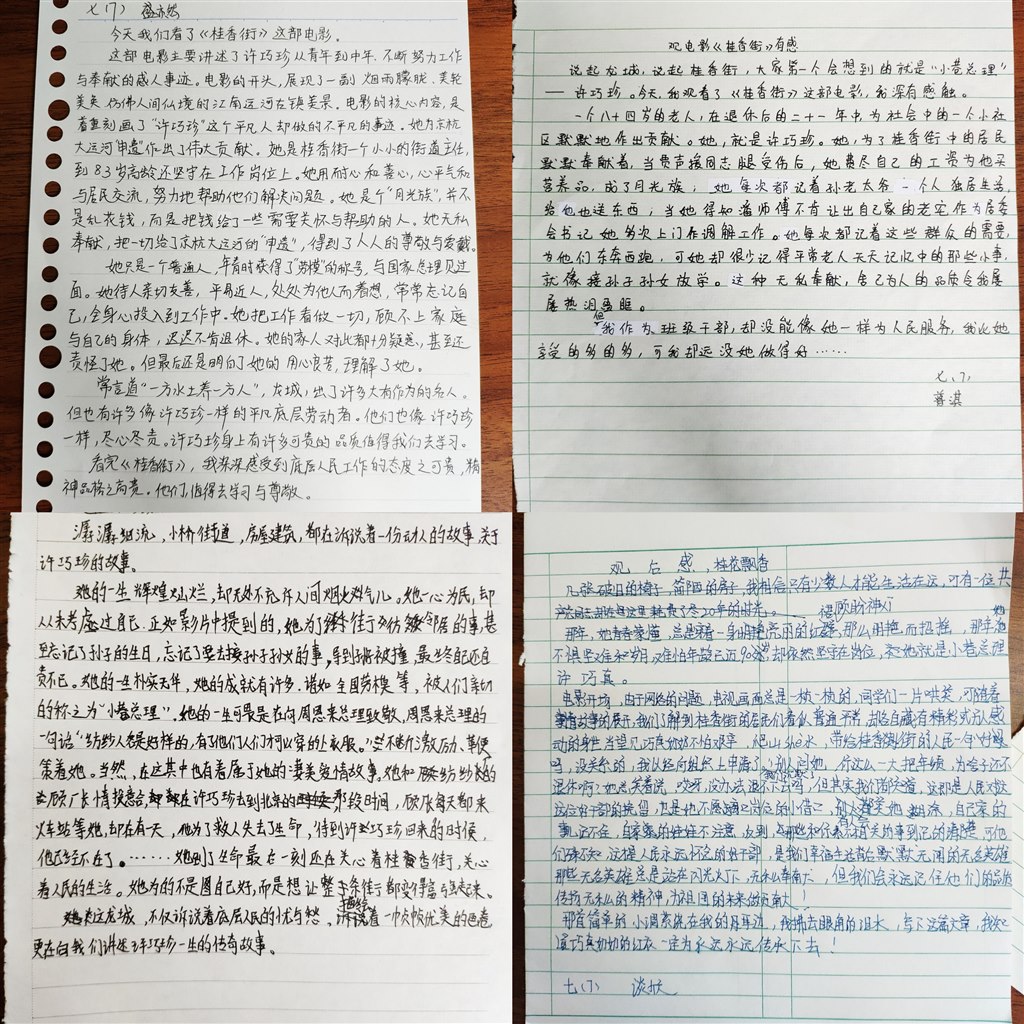 七(7) 盛亦然
今天我们看了《桂香街》这部电影。
这部电影主要讲述了许巧珍从青年到中年,不断努力工作
与奉献的感人事迹。电影的开头,展现了一副烟雨朦胧、美轮
美奂仿佛人间仙境的江南运河古镇美景。电影的核心内容,是
着重刻画了“许巧珍”这个平凡人却做的不平凡的事迹。她为京杭
大运河“申遗”作出了伟大贡献。她是桂香街一个小小的街道主任,
到83岁高龄还坚守在工作岗位上。她用耐心和善心,心平气和
与居民交流,努力地帮助他们解决问题。她是个“月光族”,并不
是乱花钱,而是把钱给了一些需要关怀与帮助的人。她无私
奉献,把一切给了京杭大运河的“申遗”,得到了人人的尊敬与爱戴。
她只是一个普通人,年青时获得了“劳模”的称号,与国家总理见过
面。她待人亲切友善,平易近人,处处为他人而着想,常常忘记自
己,全身心投入到工作中。她把工作看做一切,顾不上家庭
与自己的身体,迟迟不肯退休。她的家人对此都十分疑惑,甚至还
责怪了她。但最后还是明白了她的用心良苦,理解了她。
常言道“一方水土养一方人”,龙城,出了许多大有作为的名人。
但也有许多像许巧珍一样的平凡底层劳动者。他们也像许巧珍
一样,尽心尽责。许巧珍身上有许多可贵的品质值得我们去学习。
看完《桂香街》,我深深感受到底层人民工作的态度之可贵,精
神品格之高贵。他们,值得去学习与尊敬。
观电影《桂香街》有感
说起龙城,说起桂香街,大家第一个会想到的就是“小巷总理”
— 许巧珍。今天,我观看了《桂香街》这部电影,我深有感触。
一个八十四岁的老人,在退休后的二十一年中,为社会中的一个小社
区默默默地作出贡献。她,就是许巧珍。她,为了桂香街中的居民
默默奉献着,当费志援同志腿受伤后,她费尽自己的工资为他买
营养品,成了月光族;她每次都记着孙老太爷一个人独居生活,
给他也送东西;当她得知潘师傅不肯让出自己家的老宅作为居委
会书记,她多次上门作调解工作。她每次都记着这些群众的需要,
为他们东奔西跑,可她却很少记得平常老人天天记忆中的那些小事,
就像接孙子孙女放学。这种无私奉献,舍己为人的品质令我屡
屡热泪盈眶。
但我作为班级干部,却没能像她一样为人民服务,我比她
享受的多的多,可我却远没她做得好……
七、(7)
普淇
潺潺细流,小桥街道,房屋建筑,都在诉说着一份动人的故事,关于
许巧珍的故事。
她的一生辉煌灿烂,却无处不充斥人间烟火燃气儿。她一心为民,却
从未考虑过自己,正如影片中提到的,她为了街坊邻居的事,甚
至忘记了孙子的生日,忘记了要去接孙子孙女的事,导致被撞,最终自己还自
责不已。她的一生朴实无华,她的成就有许多,诸如全国劳模等,被人们亲切
的称之为“小巷总理”。她的一生可畏是在向周恩来总理致敬,周恩来总理的
一句话“纺纱人都是好样的,有了他们人们才可以穿的上衣服。”不断激励、鞭
策着她。当然,在这其中也有着属于她的凄美爱情故事,她和
顾厂长情投意合,在许巧珍去到北京的那段时间,顾厂长每天都来
火车站等她,却在有一天,他为了救人失去了生命,待到许巧珍回来的时候,
他已经不在了。……她到了生命最后一刻还在关心着桂香街,关心
着人民的生活。她为的不是图自己好,而是想让整条街都变得富与美起来。
这龙城,不仅诉说着底层人民的忧与愁,描绘着一个个恢优美的画卷
更在向我们讲述许巧珍一生的传奇故事。
观后感,桂花飘香
几张破旧的椅子,简陋的房子,我相信只有少数人才能生活在这,可有一位共
产党员却在这里耗费了尽20年的时光。
那年,她青春豪迈,总是穿着一身明艳亮丽的红装,那么明艳而招摇,那年她
不惧艰难和岁月,难怕年龄已近90岁,却依然坚守在岗位,和她就是小巷总理
许巧真。
电影开场,由于网络的问题,电视画面总是一帧一帧的,同学们一片哄笑,可随着
故事的展开,我们了解到桂香街的居民们看似普通平常,却各自藏有精彩或无感
动的身世,当望见巧真奶奶不怕艰辛,爬山涉水,带给桂香街的人民一句“好喝
吗,没关系的,我已经向组织上申请了”,别人问她,你这么一大把年纪,为啥子还不
退休啊?她总笑着说,“哎呀,没办法退不下去啊,但其实我们都知道,这都是人民对这
这位好干部的挽留,也是她不愿退位岗位的小借口,别人都笑她糊涂,自己家的
事记不住,自家的娃娃不注意,反到
们殊不知,这样人民永远怀念的好干部,是我们幸福生活散在默默无闻的无名英雄
那些无名英雄总是站在闪光灯下,无私奉献下,但我们会永远记住他们的品质
传扬无私的精神,为祖国的未来做贡献!
那首简单的小调萦绕在我的耳边,我拂去眼角的泪水,写下这篇文章,我祝
愿巧真奶奶的红衣一定为永远永远传承下去!
七(7)